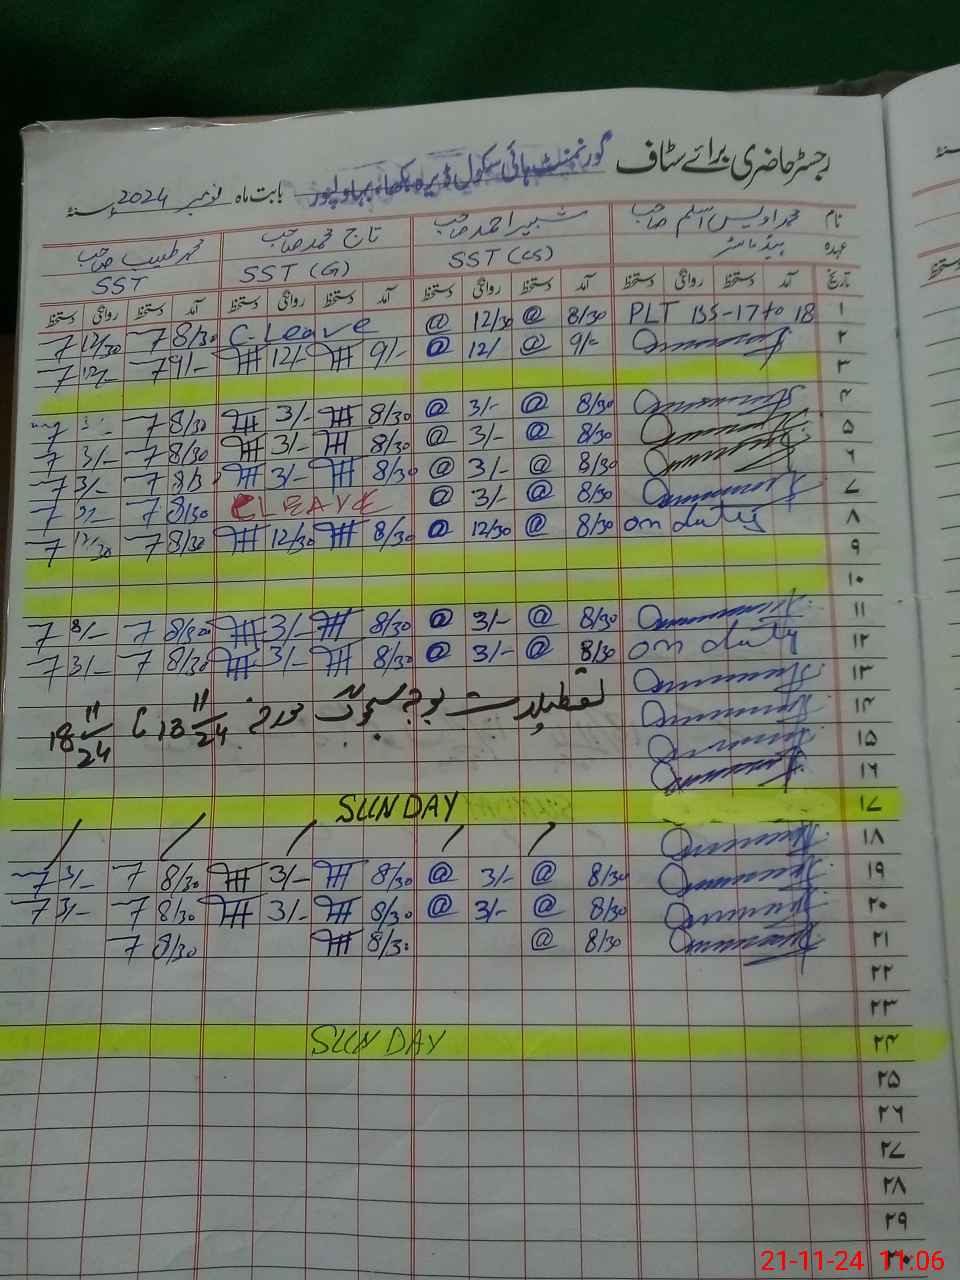 رجسٹر حاضری برائے سٹاف گورنمنٹ ہائی سکول ڈیرہ بکھا، بہاولپور بابت ماہ نومبر 2024 سنہ
نام محمد اویس اسلم صاحب شبیر احمد صاحب تاج محمد صاحب محمد طیب صاحب
عہدہ ہیڈ ماسٹر SST (CS) SST (G) SST
تاریخ آمد دستخط روانگی دستخط آمد دستخط روانگی دستخط آمد دستخط روانگی دستخط آمد دستخط روانگی دستخط
۱ PLT BS-17 to 18 8/30 @ 12/30 @ C-Leave 8/30 7 12/30 7
۲ 9/- @ 12/ @ 9/- 12/- 9/- 7 12/- 7
۳
۴ 8/30 @ 3/- @ 8/30 3/- 8/30 7 3/- 7
۵ 8/30 @ 3/- @ 8/30 3/- 8/30 7 3/- 7
۶ 8/30 @ 3/- @ 8/30 3/- 8/3 7 3/- 7
۷ 8/30 @ 3/- @ CLEAVE 8/30 7 3/- 7
۸ on duty 8/30 @ 12/30 @ 8/30 12/30 8/30 7 12/30 7
۹
۱۰
۱۱ 8/30 @ 3/- @ 8/30 3/- 8/30 7 8/- 7
۱۲ on duty 8/30 @ 3/- @ 8/30 3/- 8/30 7 3/- 7
۱۳
۱۴ تعطیلات بوجہ سموگ مورخہ 13 11/24 تا 18 11/24
۱۵
۱۶
۱۷ SUNDAY
۱۸
۱۹ 8/30 @ 3/- @ 8/30 3/- 8/30 7 3/- 7
۲۰ 8/30 @ 3/- @ 8/30 3/- 8/30 7 3/- 7
۲۱ 8/30 @ 8/30 8/30 7
۲۲
۲۳
۲۴ SUNDAY
۲۵
۲۶
۲۷
۲۸
۲۹
۳۰
21-11-24 11:06